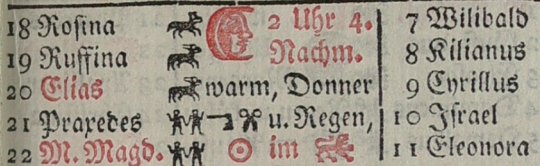 18 Roſina 2 Uhr 4. 7 Wilibald
19 Ruffina Nachm. 8 Kilianus
20 Elias warm, Donner 9 Cyrillus
21 Praxedes u. Regen, 10 Iſrael
22 M. Magd. ☉ im ♌ 11 Eleonora